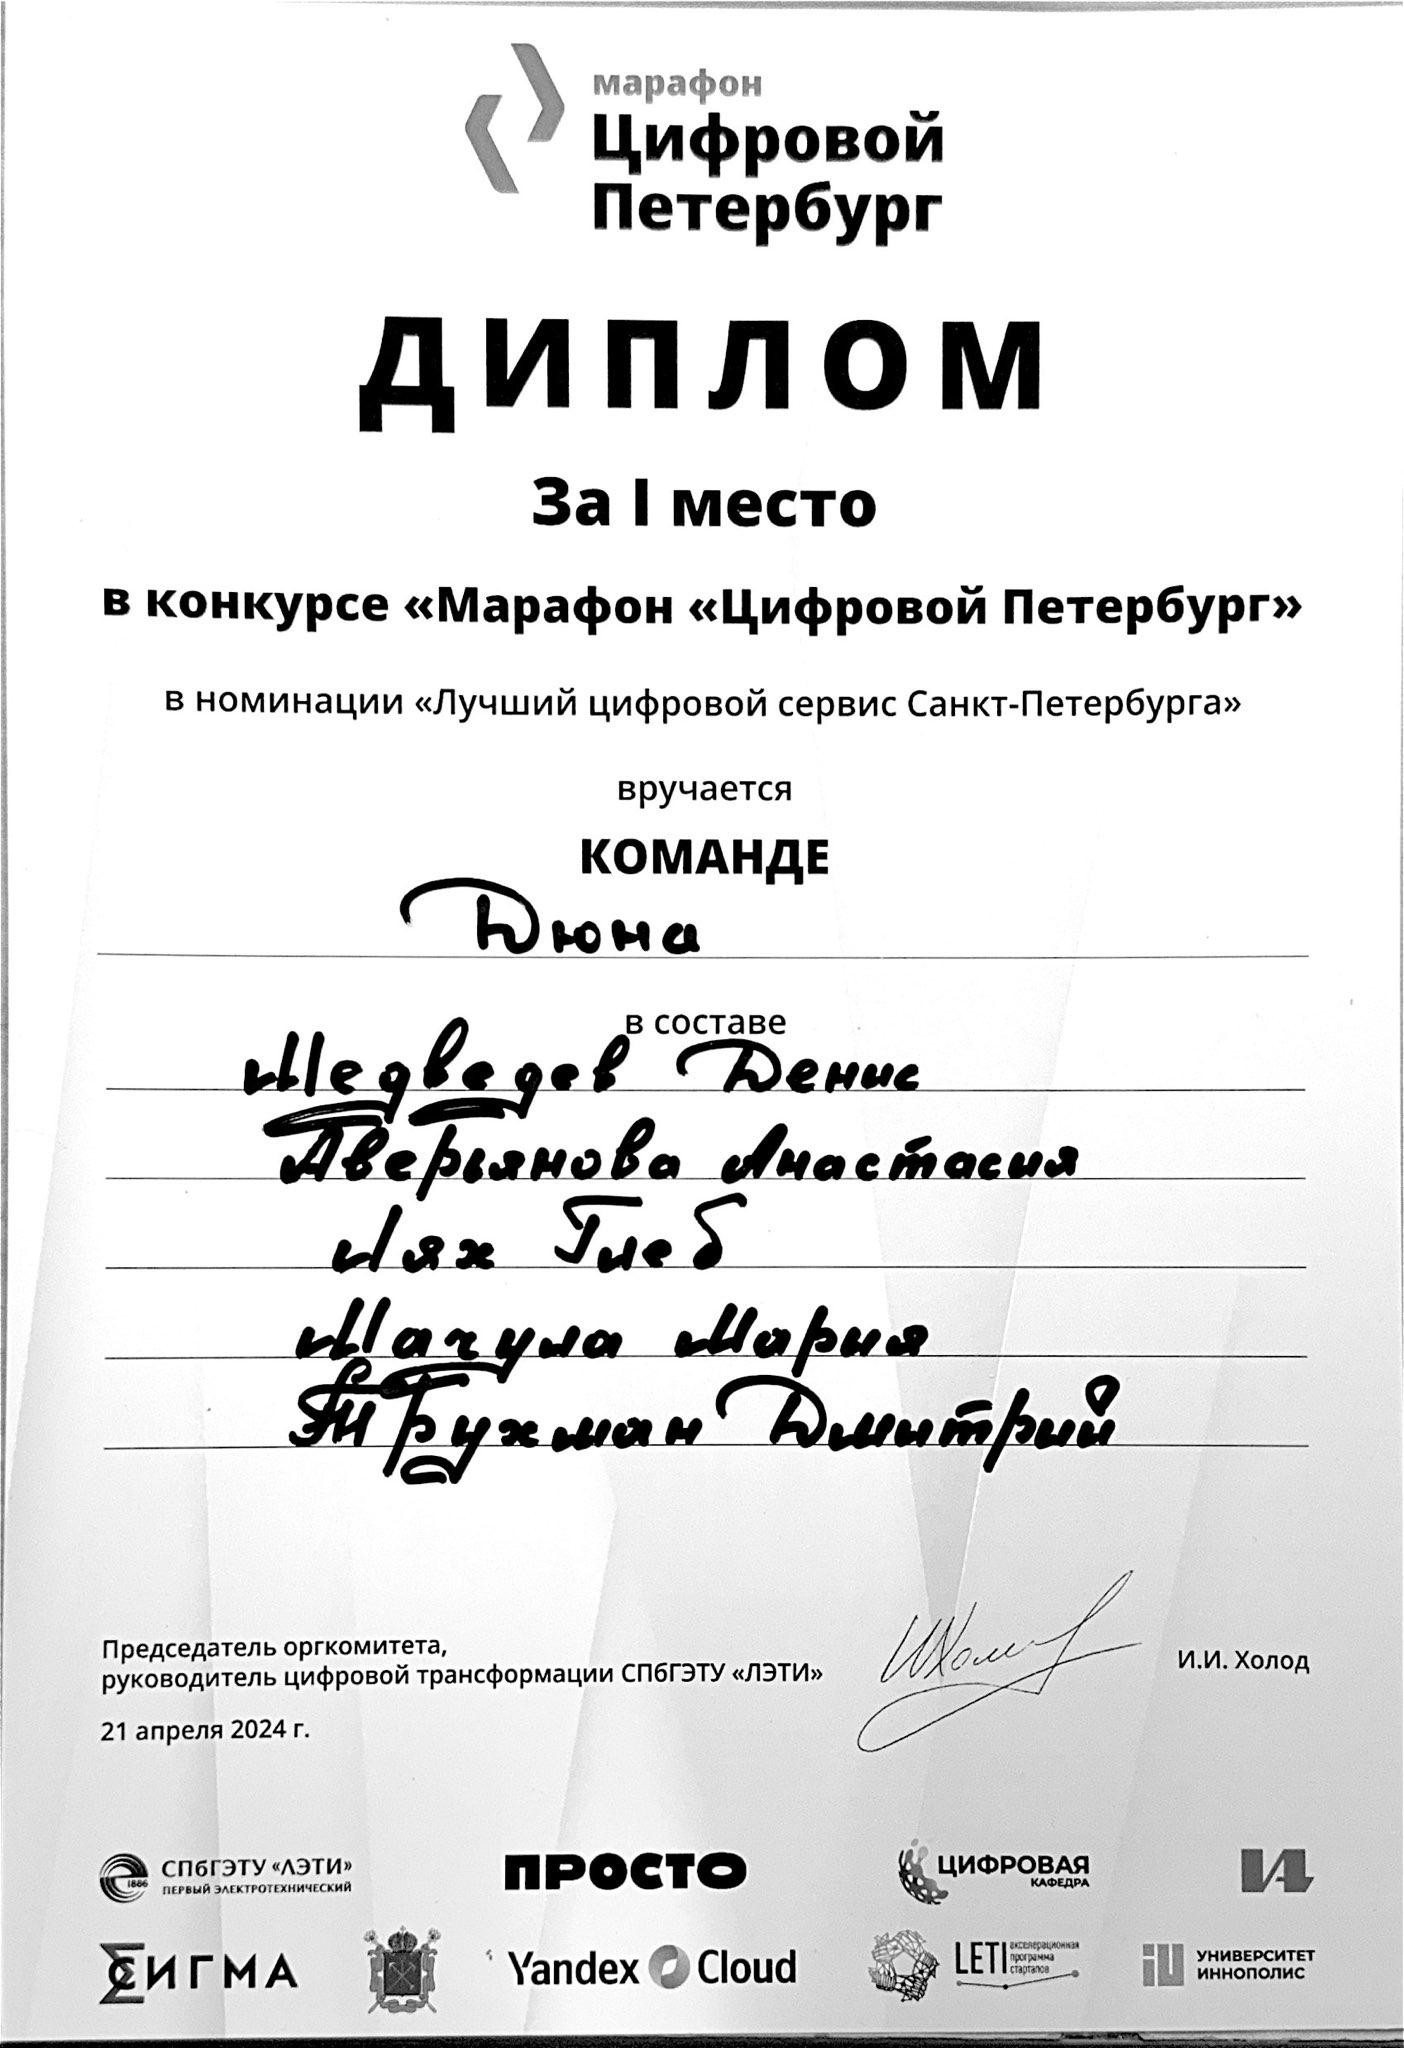 марафон
Цифровой
Петербург
ДИПЛОМ
За I место
в конкурсе «Марафон «Цифровой Петербург»
в номинации «Лучший цифровой сервис Санкт-Петербурга»
вручается
КОМАНДЕ
Дюна
в составе
Медведев Денис
Аверьянова Анастасия
Лях Глеб
Мачула Мария
Трухман Дмитрий
Председатель оргкомитета,
руководитель цифровой трансформации СПбГЭТУ «ЛЭТИ»
И.И. Холод
21 апреля 2024 г.
1886
СПбГЭТУ «ЛЭТИ»
ПЕРВЫЙ ЭЛЕКТРОТЕХНИЧЕСКИЙ
ПРОСТО
ЦИФРОВАЯ
КАФЕДРА
СИГМА
Yandex Cloud
LETI
акселерационная
программа
стартапов
УНИВЕРСИТЕТ
ИННОПОЛИС